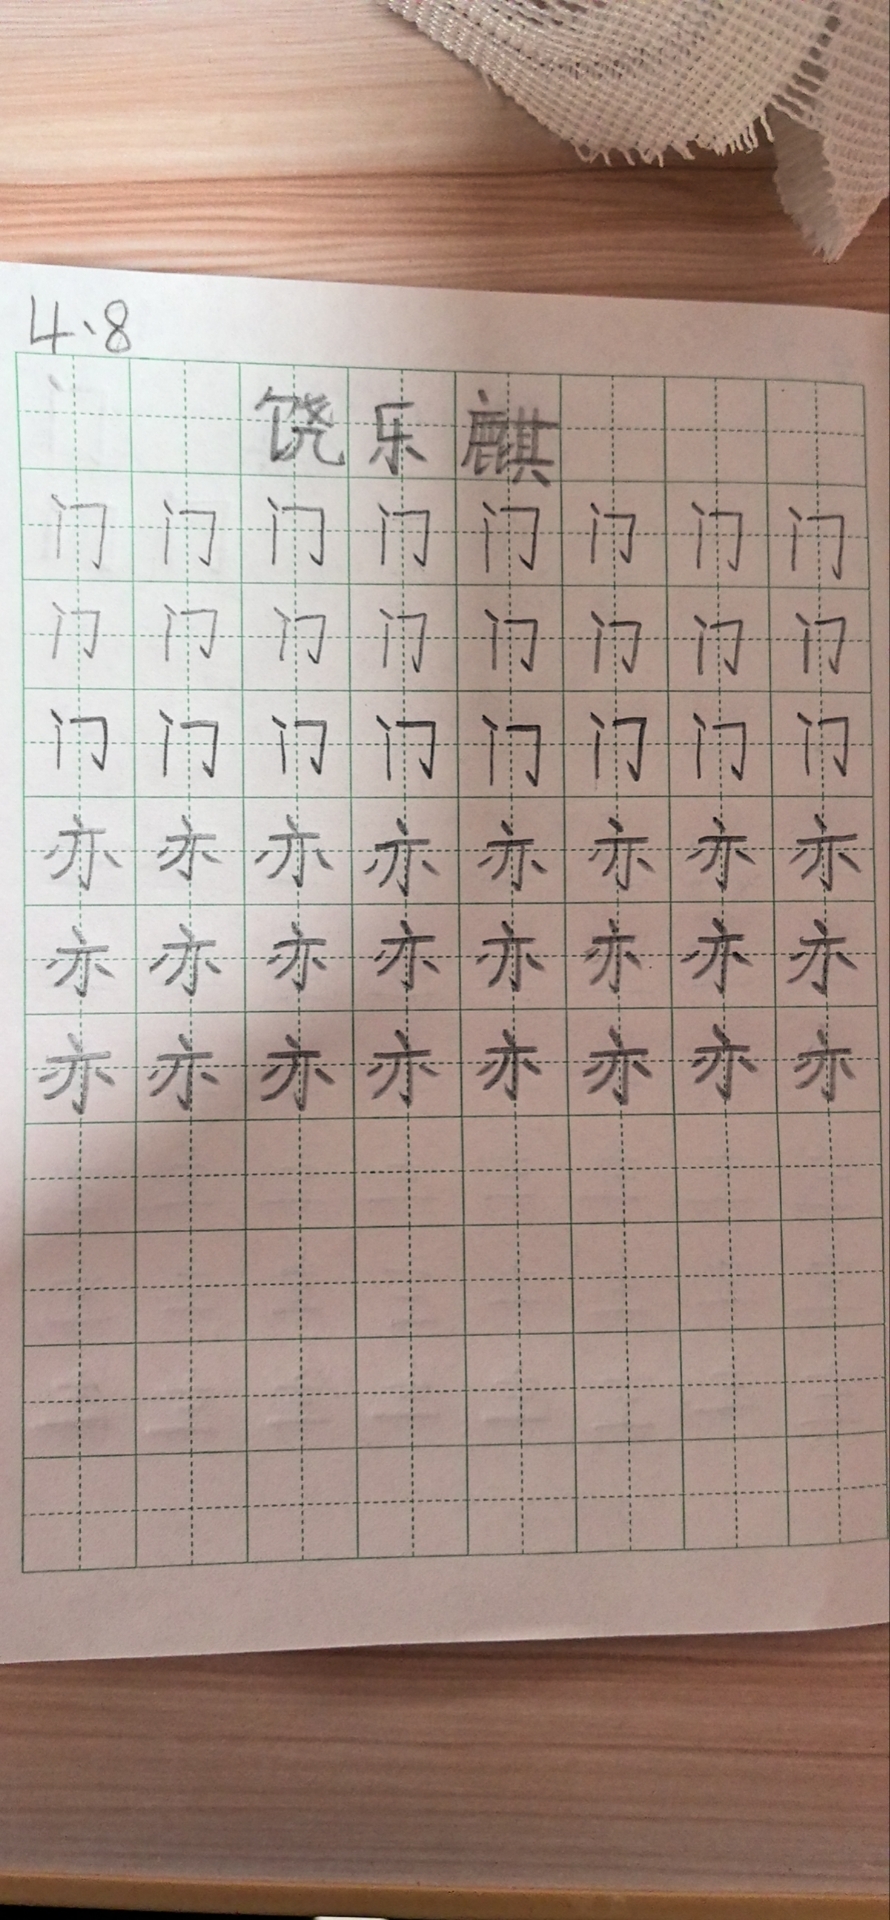 4、8
饶乐麒
门门门门门门门门
门门门门门门门门
门门门门门门门门
亦亦亦亦亦亦亦亦
亦亦亦亦亦亦亦亦
亦亦亦亦亦亦亦亦